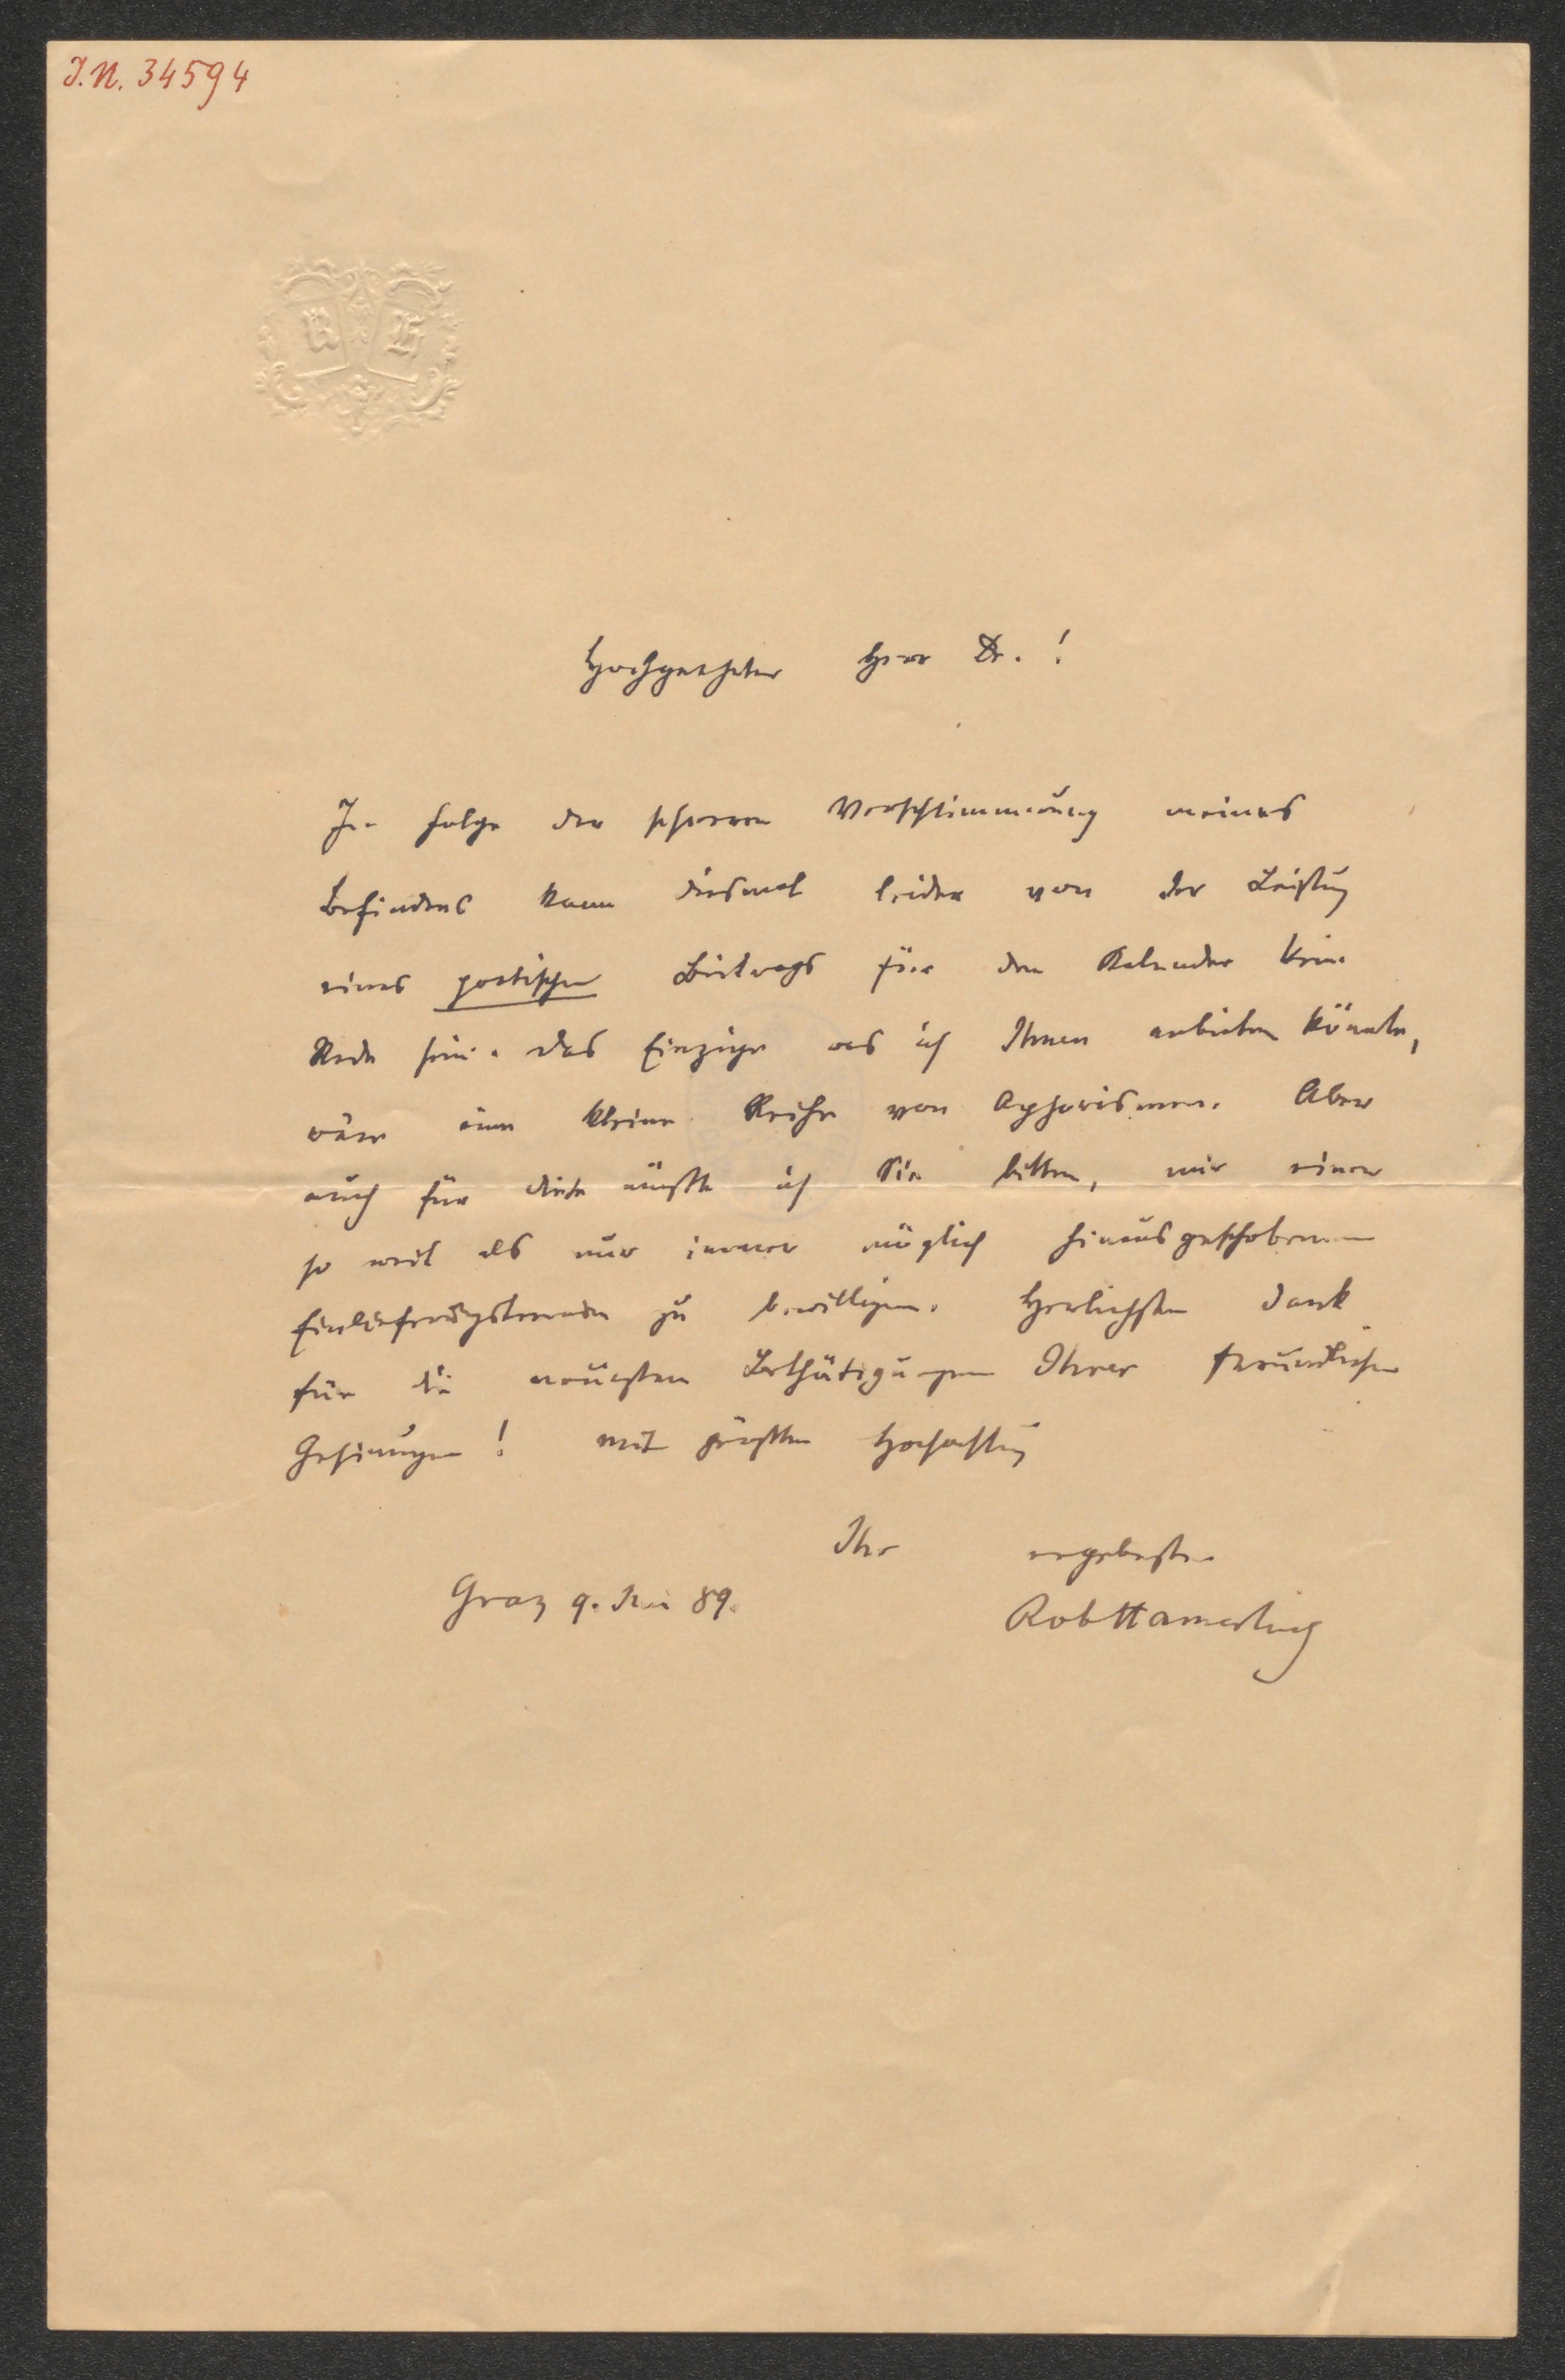 J.N. 34594
R H
Hochgeehrter Herr Dr.!
In Folge der schweren Verschlimmerung meines
Befindens kann diesmal leider von der Leistung
eines poetischen Beitrags für den Kalender keine
Rede sein. Das Einzige was ich Ihnen anbieten könnte,
wäre eine kleine Reihe von Aphorismen. Aber
auch für diese müßte ich Sie bitten, mir einen
so weit als nur immer möglich hinausgeschobenen
Einlieferungstermin zu bewilligen. Herzlichsten Dank
für die neuesten Bethätigungen Ihrer freundlichen
Gesinnungen! Mit größter Hochachtung
Ihr ergebenster
Graz 9. 89.
Rob Hamerling